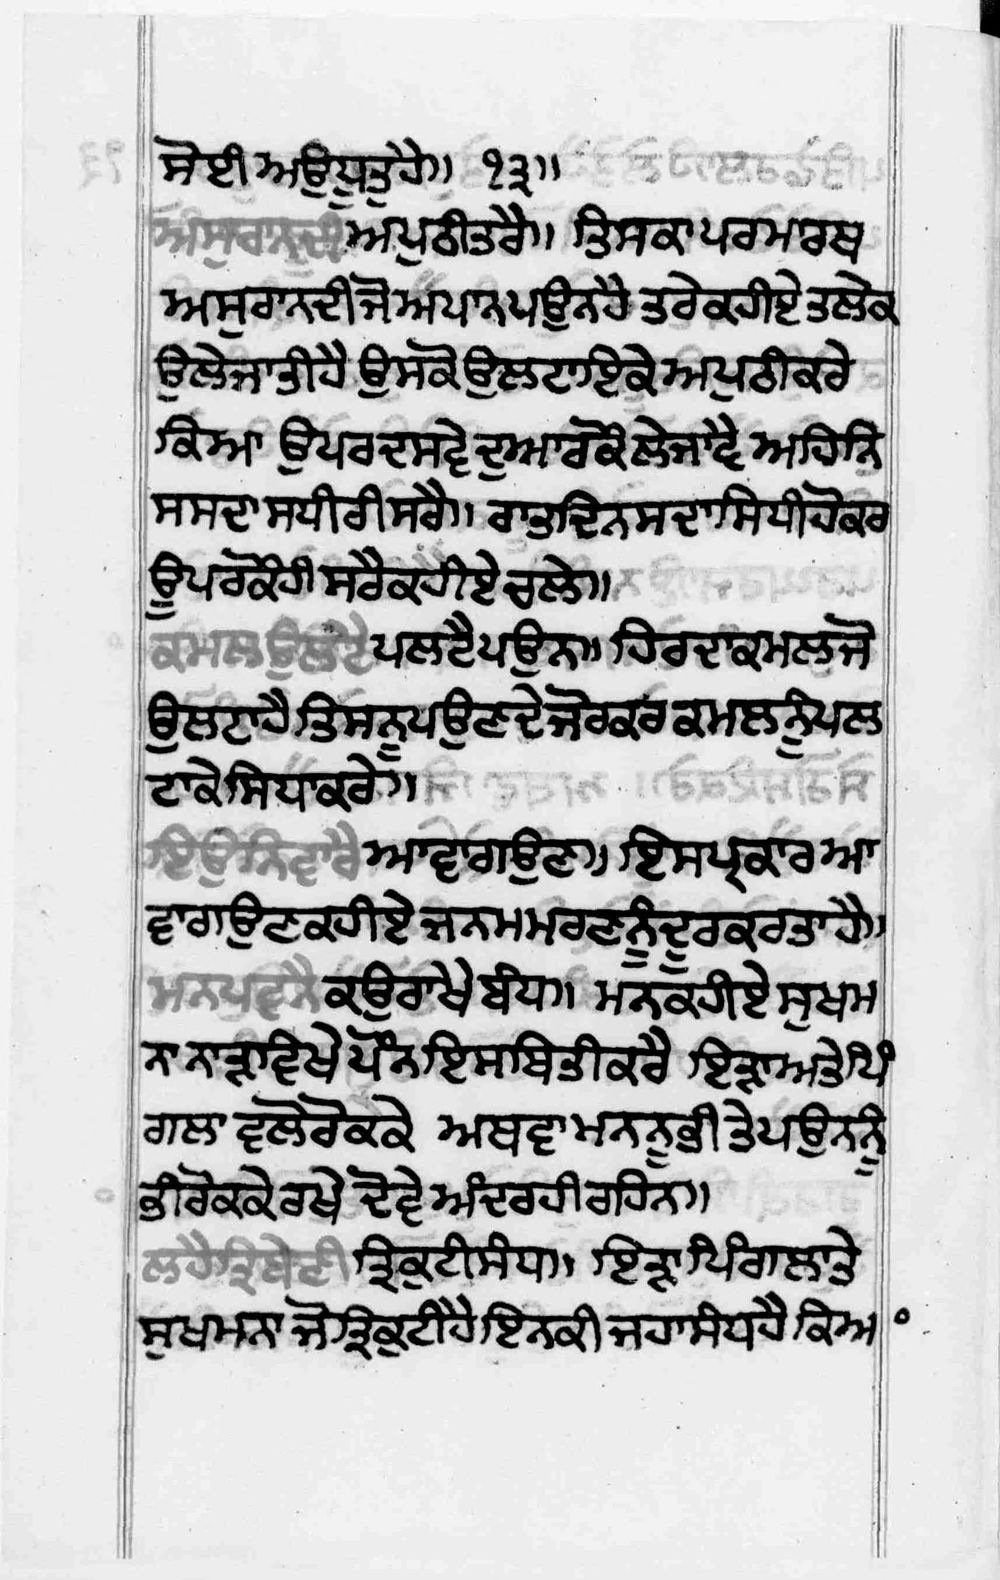 ਸੋਈ ਅਉਧੂਤੁ ਹੈ॥ ੧੩॥
ਅਸੁਰਾਨਦੀ ਅਪੁਠੀ ਤਰੈ॥ ਤਿਸਕਾ ਪਰਮਾਰਥ
ਅਸੁਰਾਨਦੀ ਜੋ ਅਪਾਨ ਪਉਨ ਹੈ ਤਰੇ ਕਹੀਏ ਤਲੇ ਕ
ਉਲੇ ਜਾਤੀ ਹੈ ਉਸਕੋ ਉਲਟਾਇਕੇ ਅਪੁਠੀ ਕਰੇ
ਕਿਆ ਉਪਰ ਦਸਵੇ ਦੁਆਰ ਕੋ ਲੇ ਜਾਵੈ ਅਹਿਨਿ
ਸ ਸਦਾ ਸਧੀ ਰੀ ਸਰੈ॥ ਰਾਤੁ ਦਿਨ ਸਦਾ ਸਿਧੀ ਹੋਕਰ
ਉਪਰ ਕੋਹੀ ਸਰੈ ਕਹੀਏ ਚਲੇ॥
ਕਮਲ ਉਲਟੈ ਪਲਟੈ ਪਉਨ॥ ਹਿਰਦਾ ਕਮਲ ਜੋ
ਉਲਟਾ ਹੈ ਤਿਸਨੂ ਪਉਣ ਦੇ ਜੋਰ ਕਰ ਕਮਲ ਨੂੰ ਪਲ
ਟਾਕੇ ਸਿਧਾ ਕਰੇ॥
ਇਉ ਨਿਵਾਰੈ ਆਵਾਗਉਣ॥ ਇਸ ਪ੍ਰਕਾਰ ਆ
ਵਾਗਉਣ ਕਹੀਏ ਜਨਮ ਮਰਣ ਨੂੰ ਦੂਰ ਕਰਤਾ ਹੈ॥
ਮਨ ਪਵਨੈ ਕਉ ਰਾਖੈ ਬੰਧ॥ ਮਨ ਕਹੀਏ ਸੁਖਮ
ਨਾ ਨਾੜਾ ਵਿਖੇ ਪੌਨ ਇਸਥਿਤੀ ਕਰੈ ਇੜਾ ਅਤੇ ਪਿੰ
ਗਲਾ ਵਲੋ ਰੋਕਕੇ ਅਥਵਾ ਮਨ ਨੂ ਭੀ ਤੇ ਪਉਨ ਨੂੰ
ਭੀ ਰੋਕਕੇ ਰਖੇ ਦੋਵੇ ਅੰਦਰ ਹੀ ਰਹਿਨ॥
ਲਹੈ ਤ੍ਰਿਬੇਣੀ ਤ੍ਰਿਕੁਟੀ ਸੰਧ॥ ਇੜਾ ਪਿੰਗਲਾ ਤੇ
ਸੁਖਮਨਾ ਜੋ ਤ੍ਰਿਕੁਟੀ ਹੈ ਇਨਕੀ ਜਹਾ ਸੰਧ ਹੈ ਕਿਅ